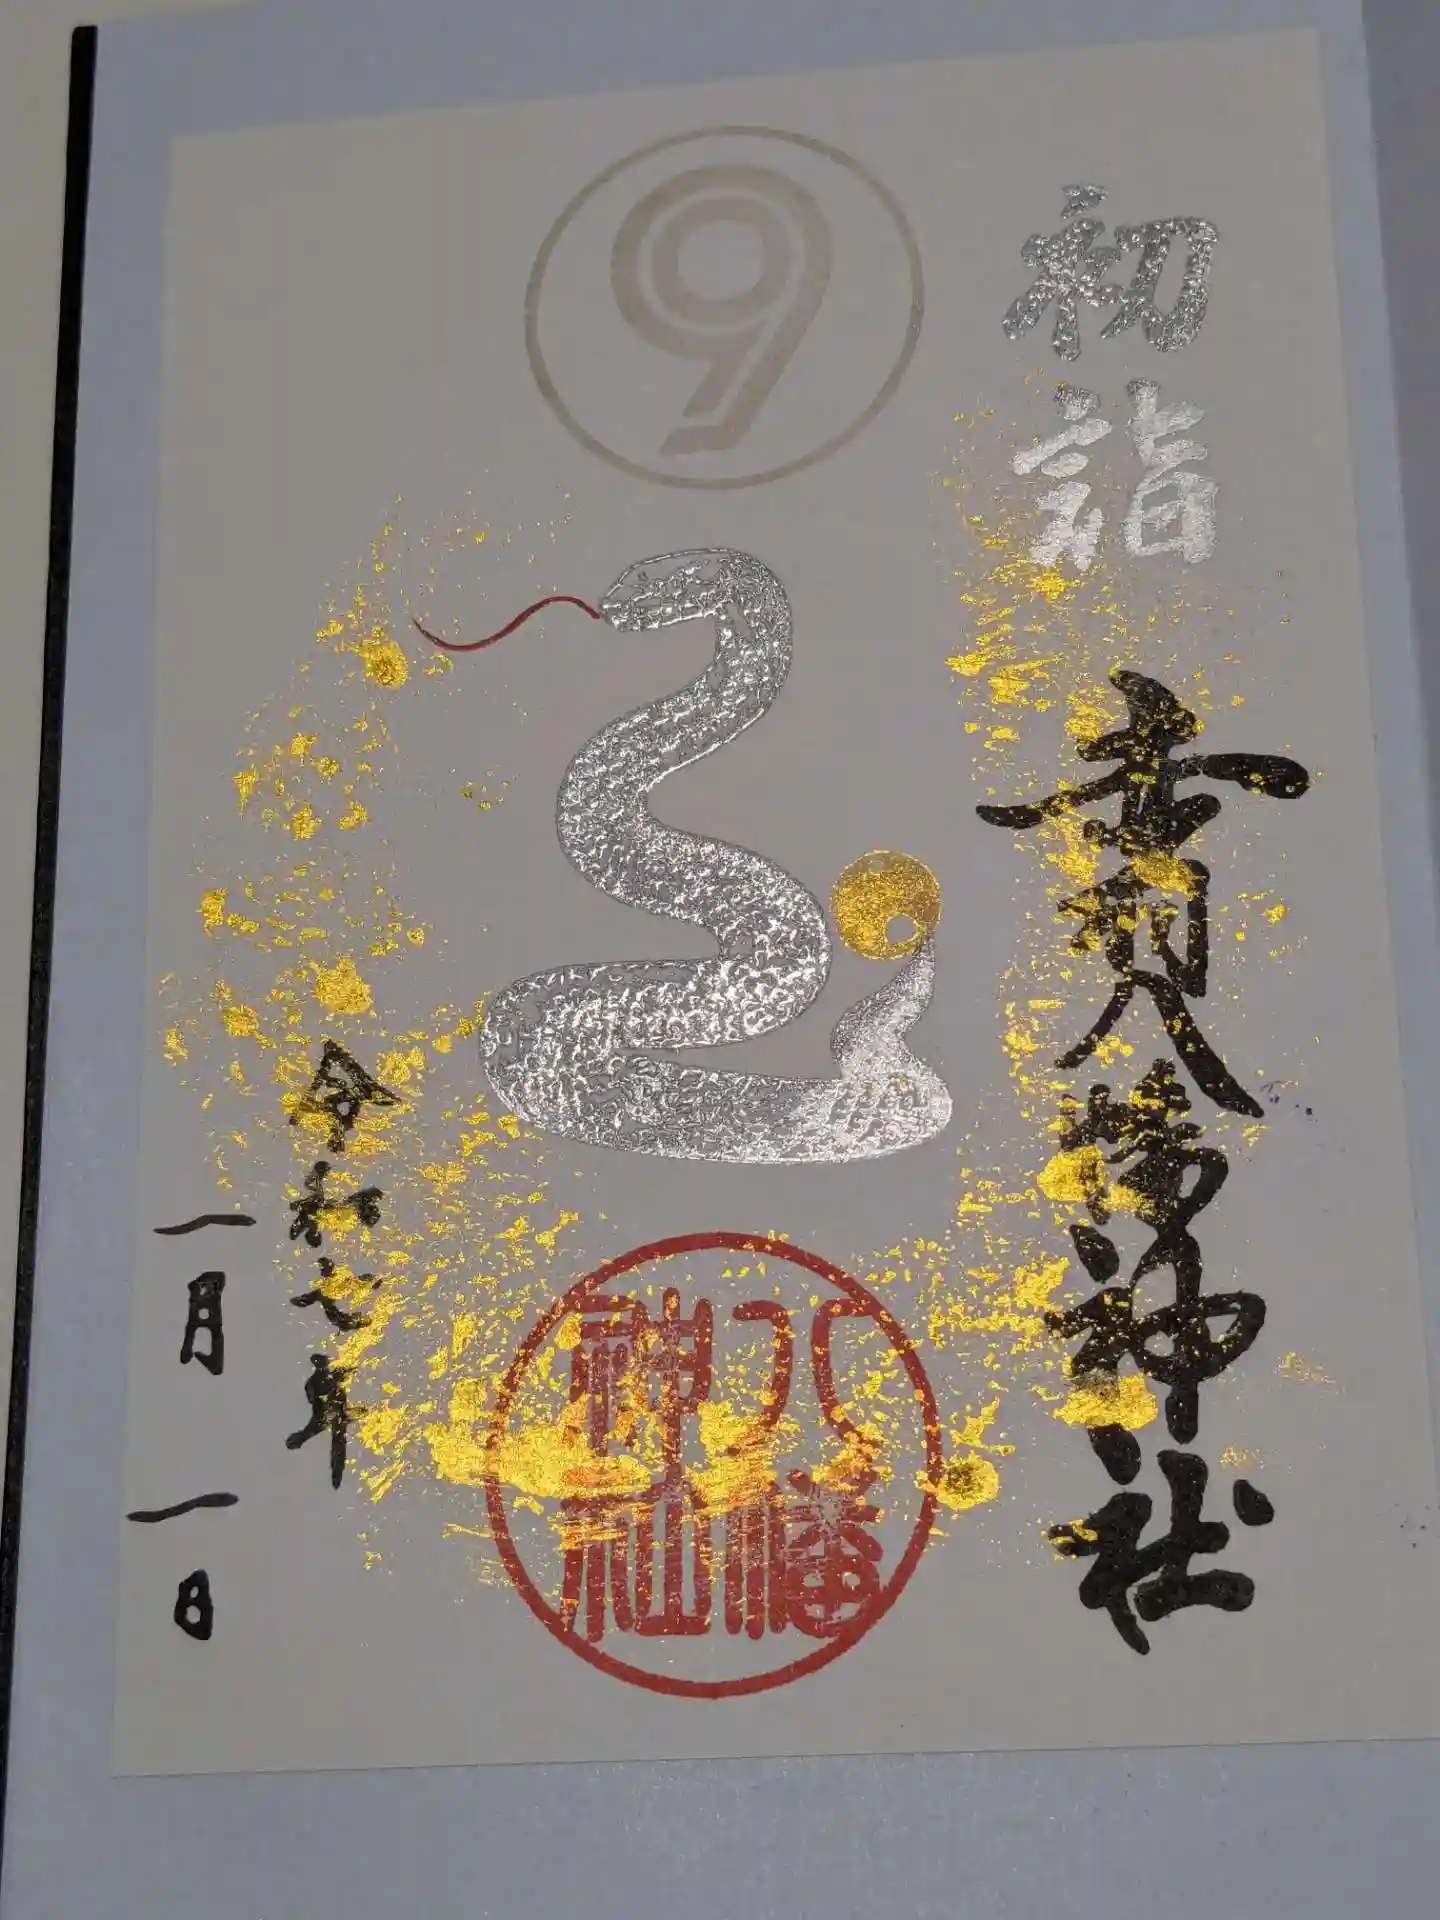 9
初詣
赤羽八幡神社
八幡
神社
令和七年
一月一日